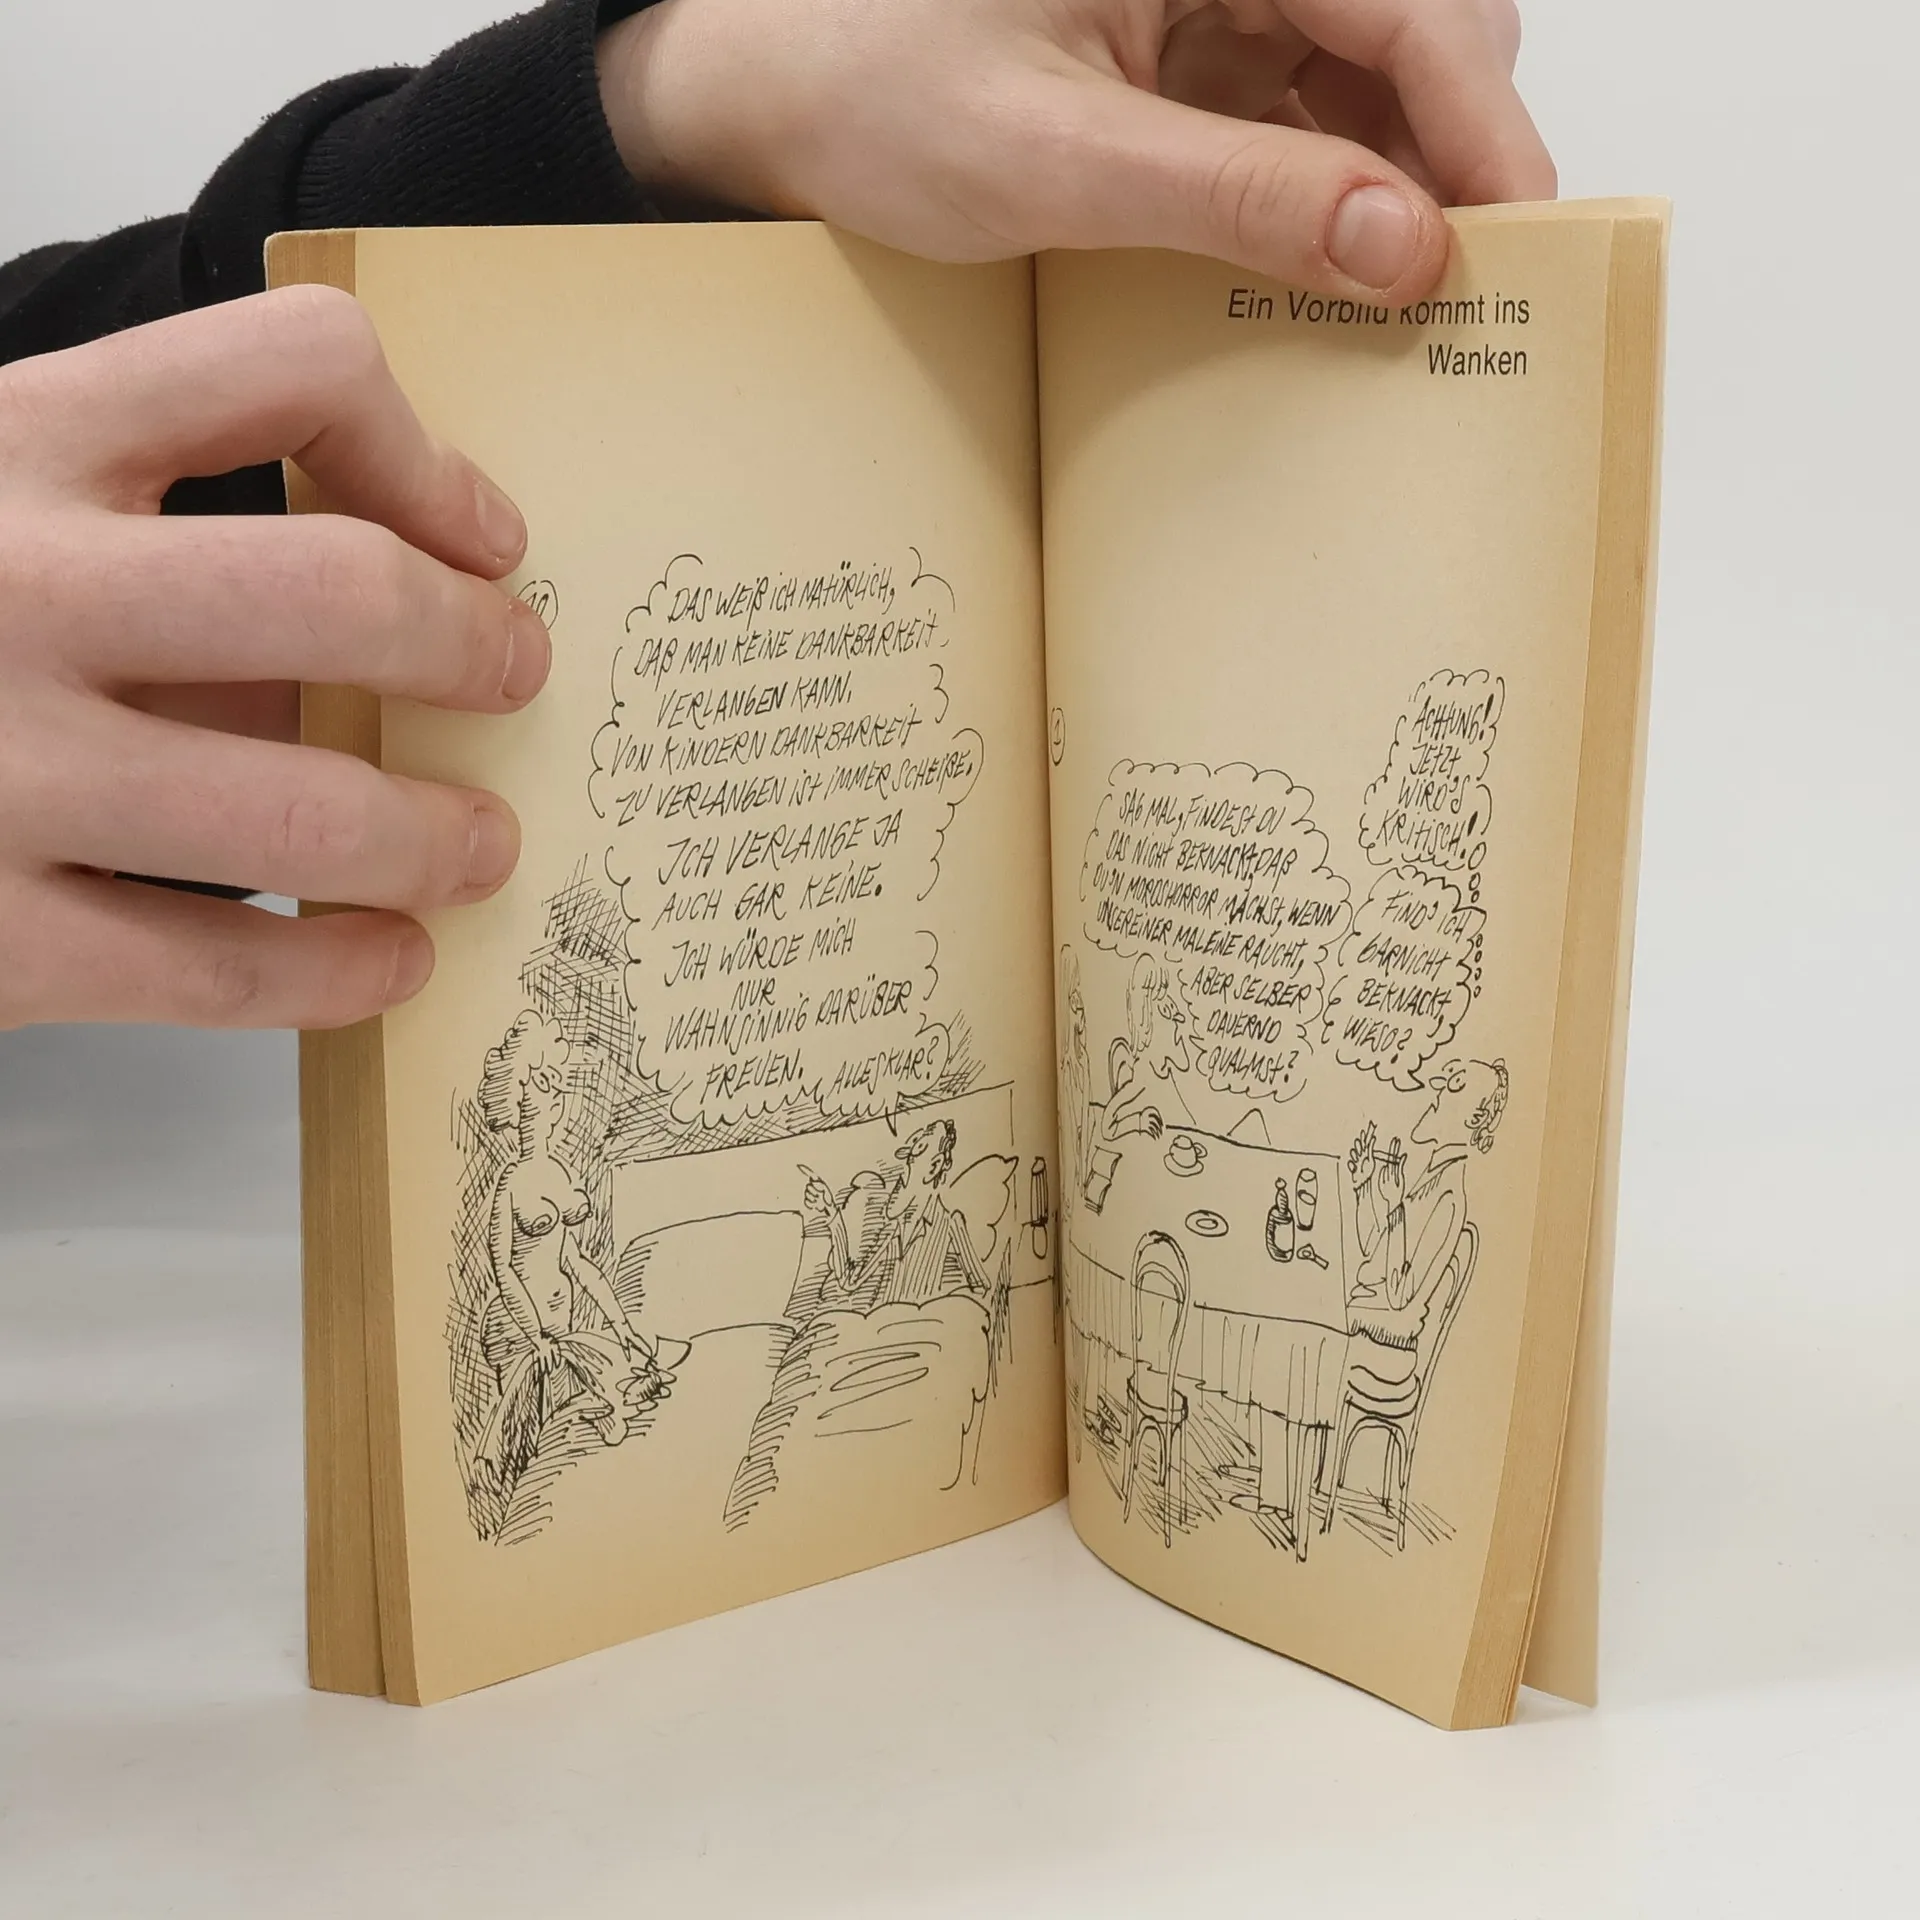 10
DAS WEIß ICH NATÜRLICH,
DAß MAN KEINE DANKBARKEIT
VERLANGEN KANN.
VON KINDERN DANKBARKEIT
ZU VERLANGEN IST IMMER SCHEIßE.
ICH VERLANGE JA
AUCH GAR KEINE.
ICH WÜRDE MICH
NUR
WAHNSINNIG DARÜBER
FREUEN. ALLES KLAR?
Ein Vorbild kommt ins
Wanken
1
SAG MAL, FINDEST DU
DAS NICHT BEKNACKT, DAß
DU'N MORDSHORROR MACHST, WENN
UNSEREINER MAL EINE RAUCHT,
ABER SELBER
DAUERND
QUALMST?
ACHTUNG!
JETZT
WIRD'S
KRITISCH!
FIND' ICH
GARNICHT
BEKNACKT,
WIESO?